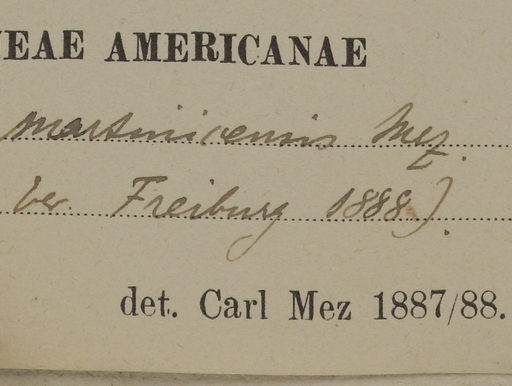 EAE AMERICANAE
martinicensis Mez.
ber. Freiburg 1888).
det. Carl Mez 1887/88.